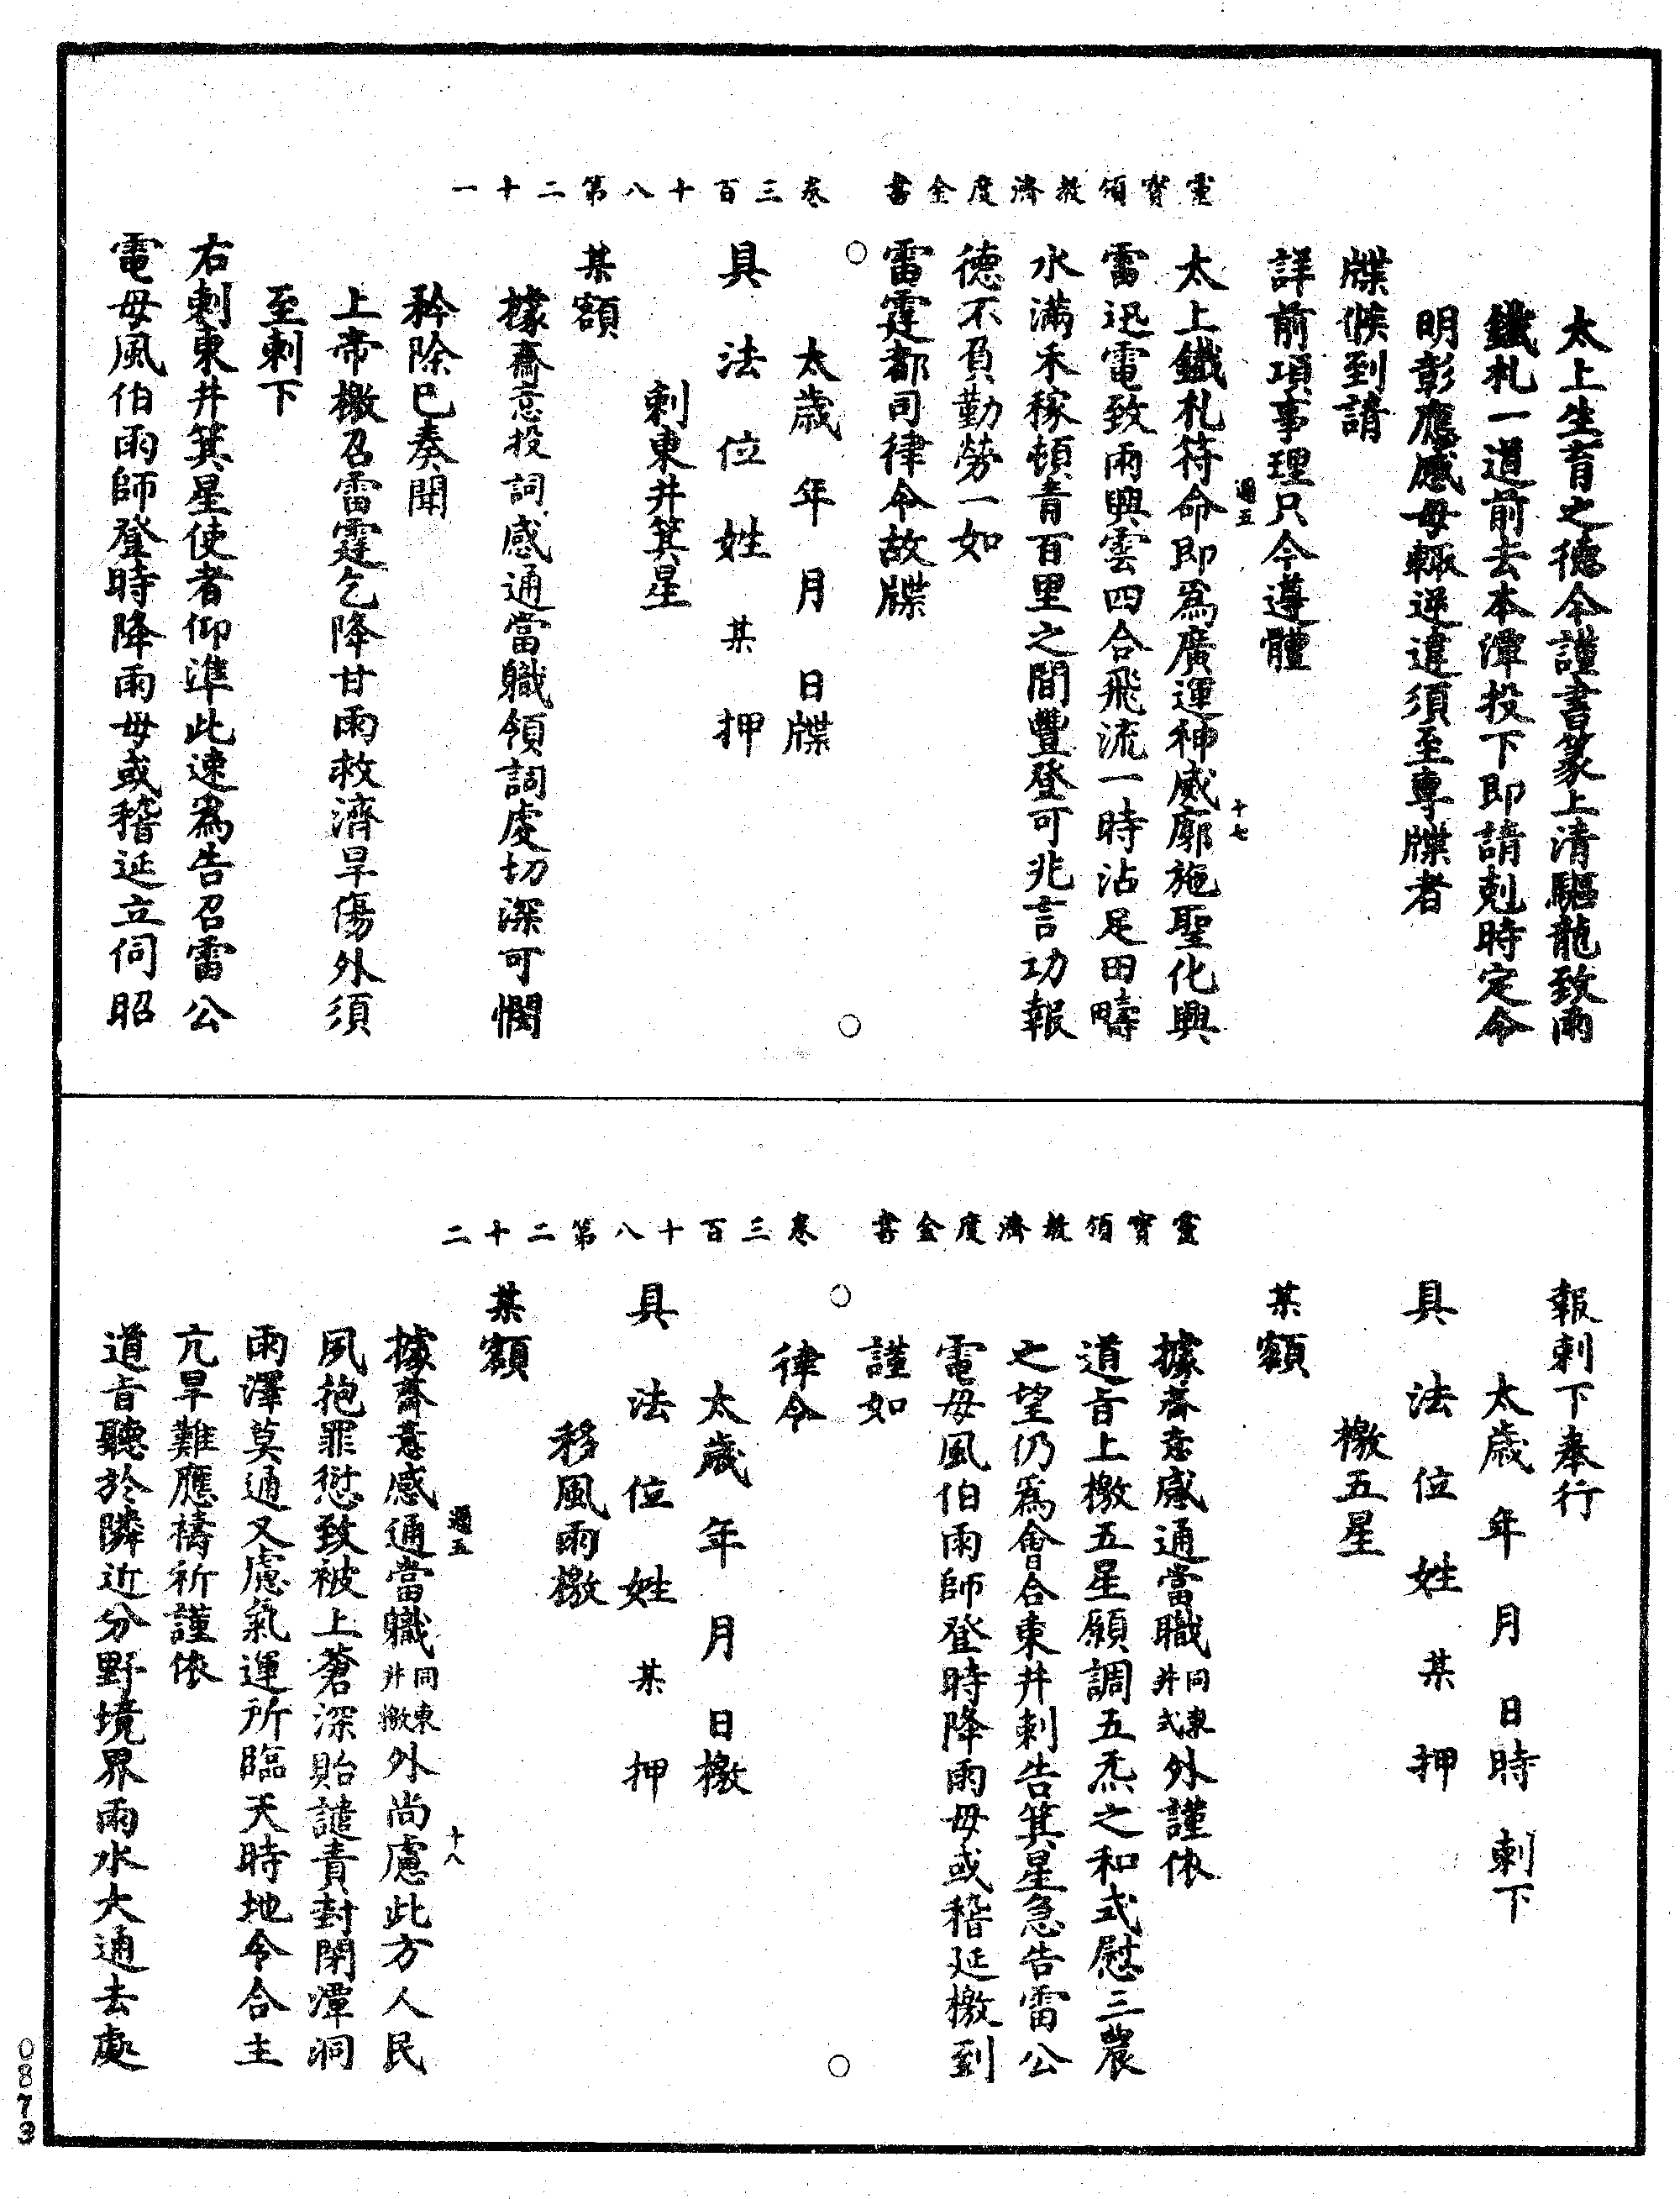 靈寶領教濟度金書　卷三百十八第二十一
太上生育之德今謹書篆上清驅龍致雨
鐵札一道前去本潭投下即請剋時定令
明彰應感毋輒逆違須至專牒者
牒候到請
詳前項事理只今遵體
週五　十七
太上鐵札符命即爲廣運神威廓施聖化興
雷迅電致雨興雲四合飛流一時沾足田疇
水滿禾稼頓青百里之間豐登可兆言功報
德不負勤勞一如
雷霆都司律令故牒
太歲　年　月　日牒
具　法　位　姓　某　押
刺東井箕星
某額
據齋意投詞感通當職領詞處切深可憫
矜除已奏聞
上帝檄召雷霆乞降甘雨救濟旱傷外須
至刺下
右刺東井箕星使者仰準此速爲告召雷公
電母風伯雨師登時降雨毋或稽延立伺昭
靈寶領教濟度金書　卷三百十八第二十二
報刺下奉行
太歲　年　月　日時　刺下
具　法　位　姓　某　押
檄五星
某額
據齋意感通當職同東井式外謹依
道旨上檄五星願調五炁之和式慰三農
之望仍爲會合東井刺告箕星急告雷公
電母風伯雨師登時降雨毋或稽延檄到
謹如
律令
太歲　年　月　日檄
具　法　位　姓　某　押
移風雨檄
某額
週五　十八
據齋意感通當職同東井檄外尚慮此方人民
夙抱罪愆致被上蒼深貽譴責封閉潭洞
雨澤莫通又慮氣運所臨天時地令合主
亢旱難應禱祈謹依
道旨聽於隣近分野境界雨水大通去處
0873